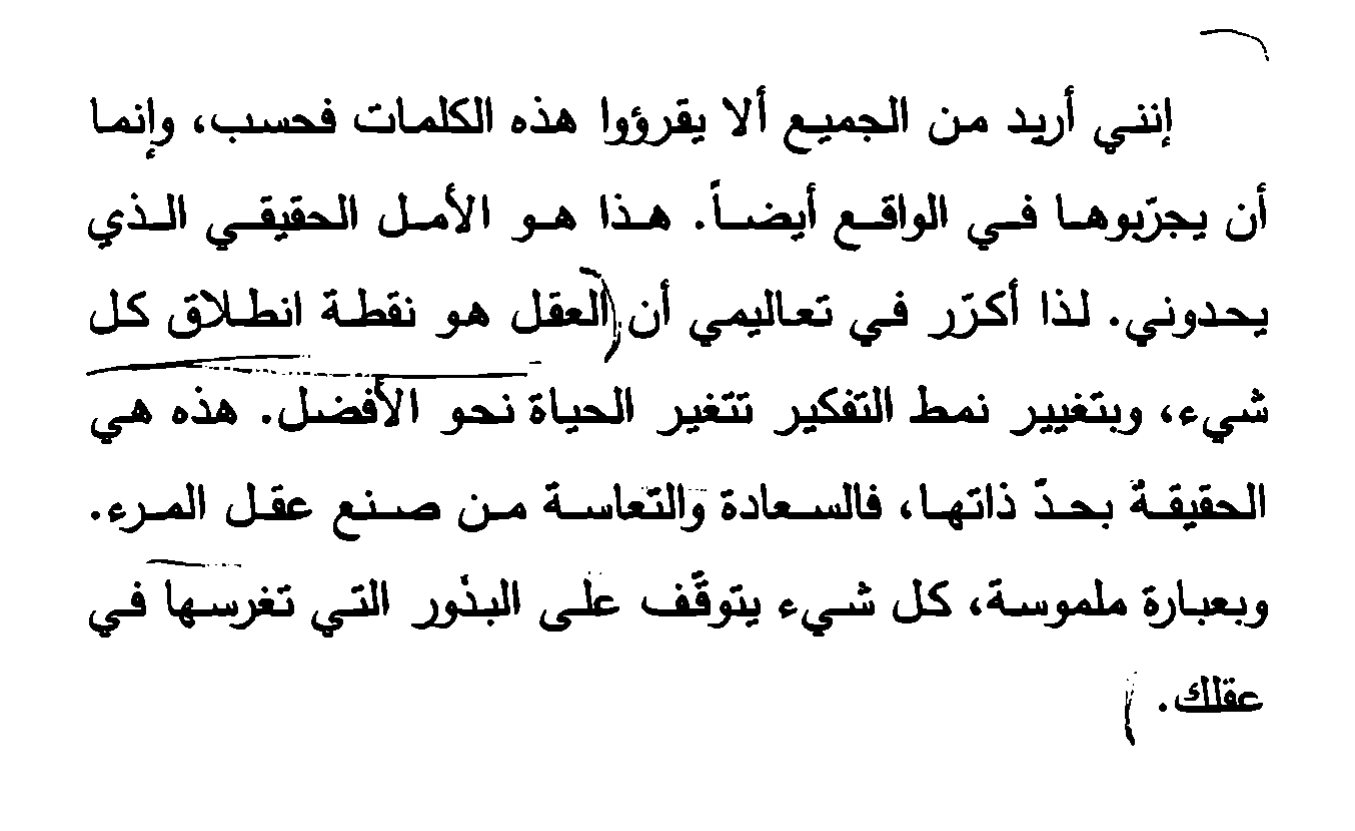 إنني أريد من الجميع ألا يقرؤوا هذه الكلمات فحسب، وإنما
أن يجرّبوها في الواقع أيضاً. هذا هو الأمل الحقيقي الذي
يحدوني. لذا أكرّر في تعاليمي أن (العقل هو نقطة انطلاق كل
شيء، وبتغيير نمط التفكير تتغير الحياة نحو الأفضل. هذه هي
الحقيقة بحدّ ذاتها، فالسعادة والتعاسة من صنع عقل المرء.
وبعبارة ملموسة، كل شيء يتوقّف على البذور التي تغرسها في
عقلك. )